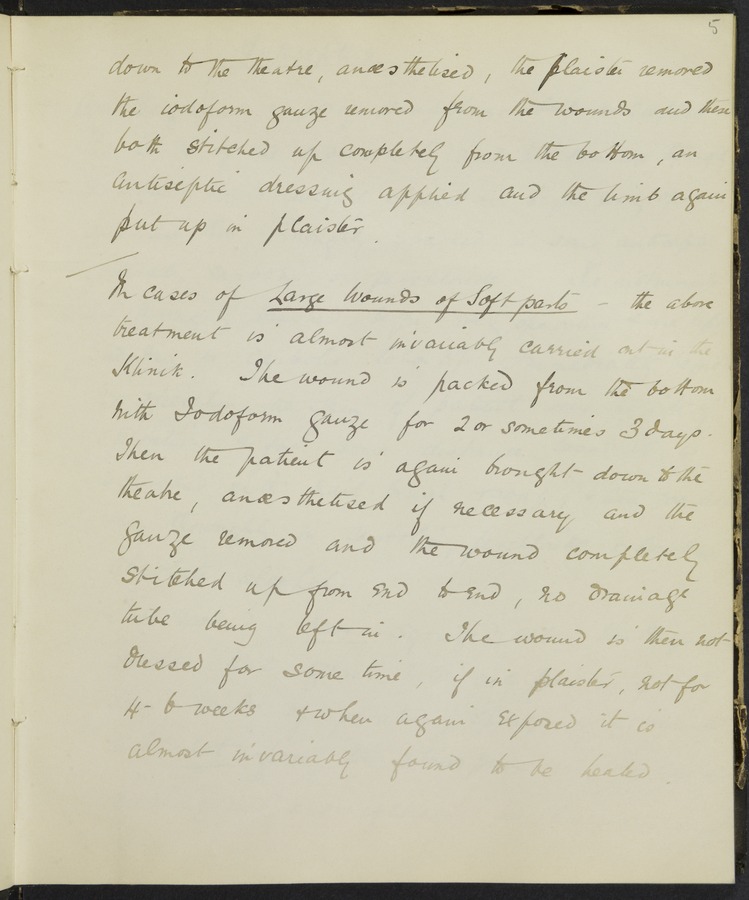 5
down to the theatre, anæsthetised, the plaister removed
the iodoform gauze removed from the wounds and then
both stitched up completely from the bottom, an
antiseptic dressing applied and the limb again
put up in plaister.
In cases of Large Wounds of Soft parts - the above
treatment is almost invariably carried out in the
Klinik. The wound is packed from the bottom
with Iodoform gauze for 2 or sometimes 3 days.
Then the patient is again brought down to the
theatre, anæsthetised if necessary and the
gauze removed and the wound completely
stitched up from end to end, no drainage
tube being left in. The wound is then not
dressed for some time, if in plaister, not for
4-6 weeks & when again exposed it is
almost invariably found to be healed.